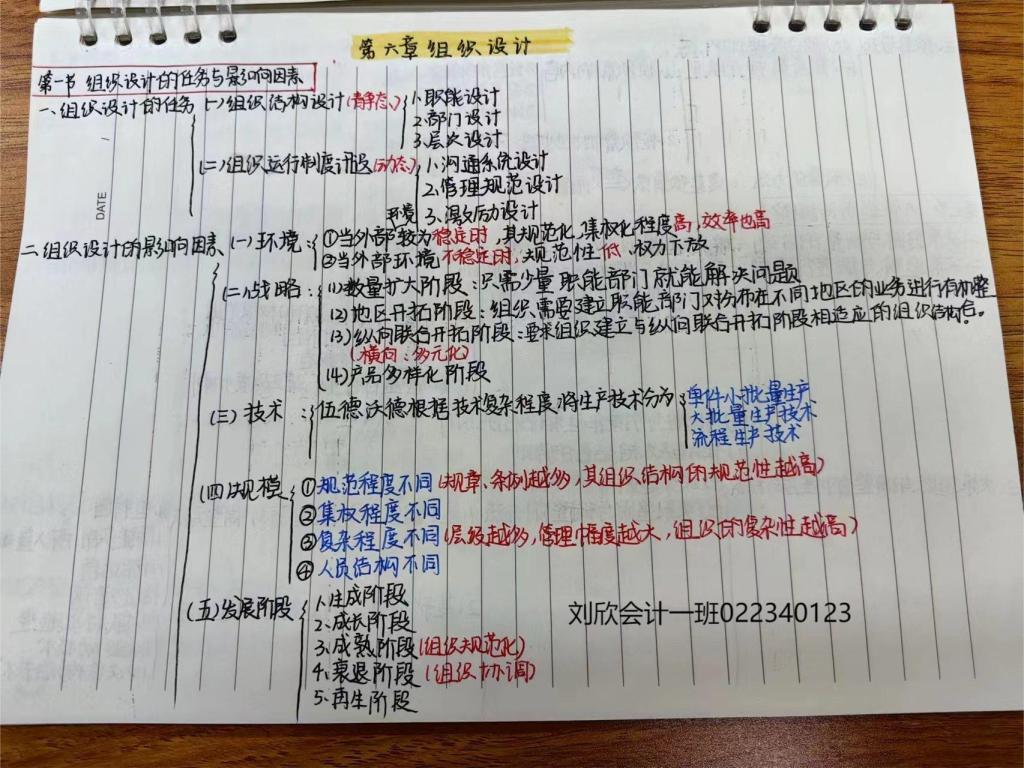 第六章组织设计
第一节 组织设计的任务与影响因素
一、组织设计的任务 (一)组织结构设计(静态) 1.职能设计
2.部门设计
3.层次设计
(二)组织运行制度设计(动态) 1.沟通系统设计
2.管理规范设计
3.激励设计
DATE
二.组织设计的影响因素 (一)环境 ①当外部环境较为稳定时,其规范化、集权化程度高,效率也高
②当外部环境不稳定时,规范性低、权力下放
(二)战略: (1)数量扩大阶段:只需少量职能部门就能解决问题
(2)地区开拓阶段:组织需要建立职能部门对分布在不同地区的业务进行有机整合。
(3)纵向联合开拓阶段:要求组织建立与纵向联合开拓阶段相适应的组织结构。
(横向:多元化)
(4)产品多样化阶段
(三)技术: 伍德沃德根据技术复杂程度,将生产技术分为 单件小批量生产
大批量生产技术
流程生产技术
(四)规模 ①规范程度不同(规章、条例越多,其组织结构的规范性越高)
②集权程度不同
③复杂程度不同(层级越多,管理幅度越大,组织的复杂性越高)
④人员结构不同
(五)发展阶段 1.生成阶段
2.成长阶段
3.成熟阶段(组织规范化)
4.衰退阶段(组织协调)
5.再生阶段
刘欣会计一班022340123